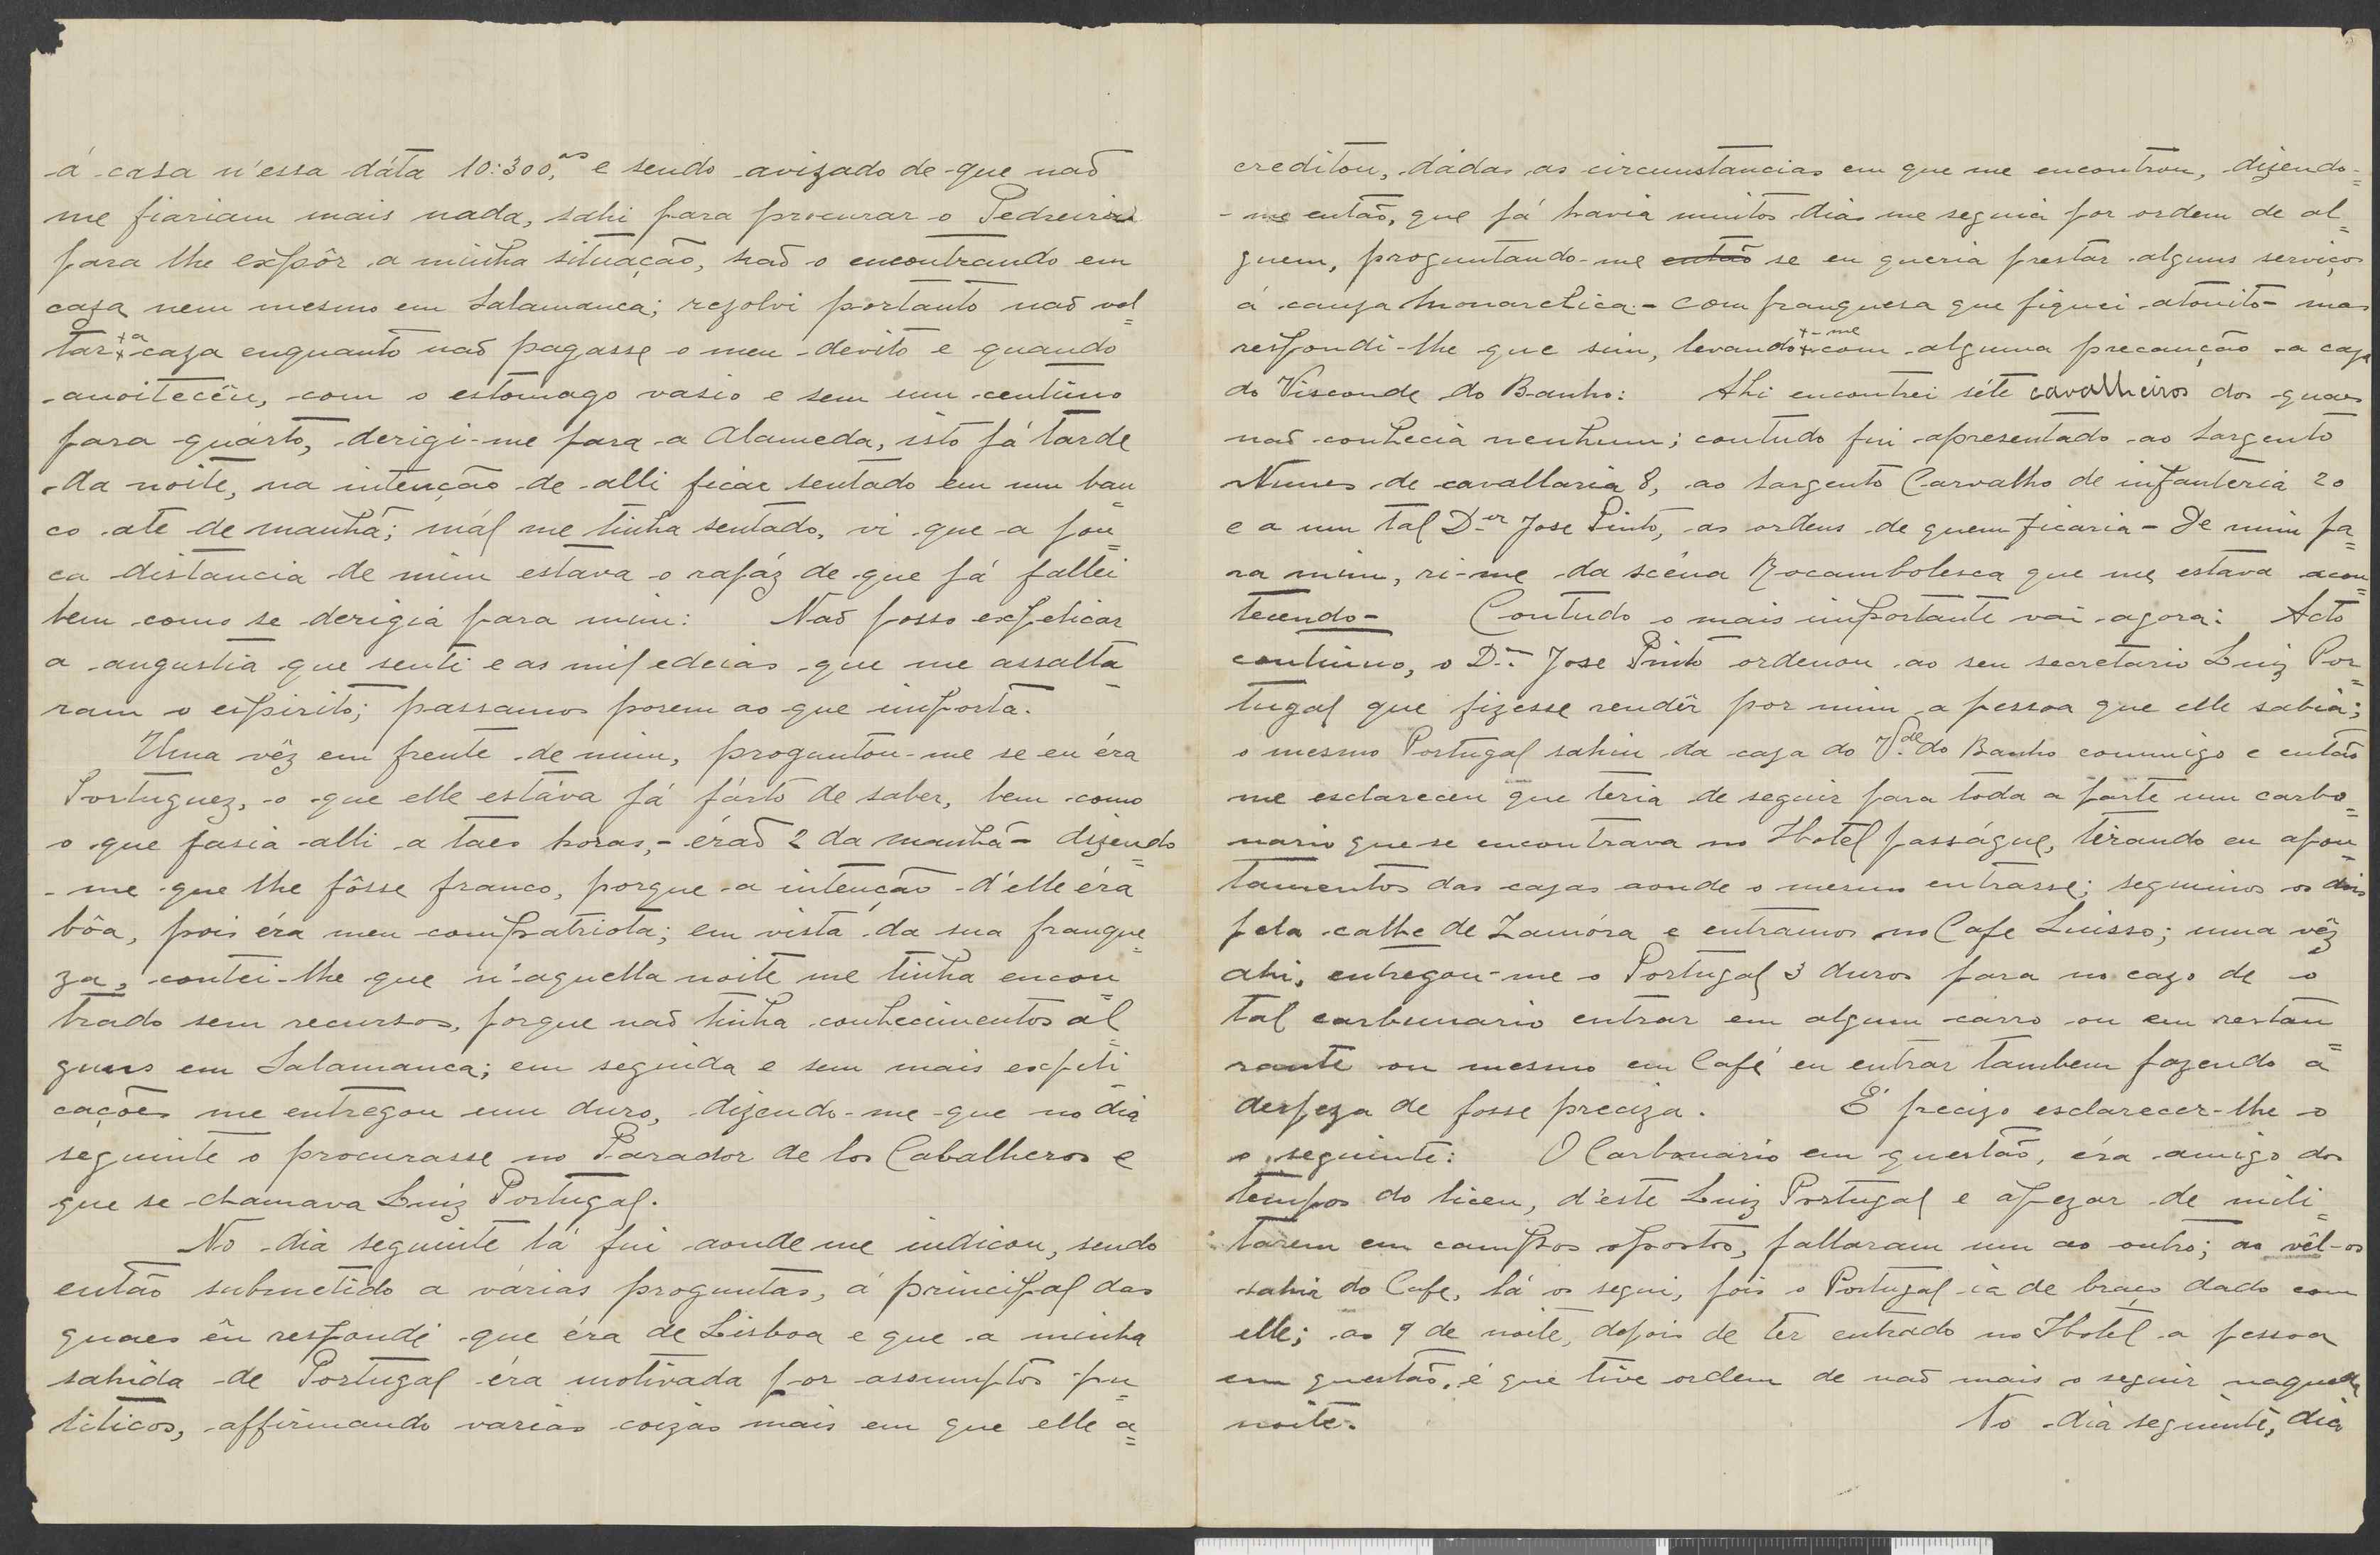 á casa n'essa dáta 10:300,as e sendo avizado de que naõ
me fiariam mais nada, sahi para procurar o Pedreira
para lhe expôr a minha situação, naõ o encontrando em
caza nem mesmo em Salamanca; rezolvi portanto naõ vol=
tar a caza enquanto naõ pagasse o meu devito e quando
anoitecêu, com o estomago vasio e sem um centimo
para quárto, derigi-me para a Alameda, isto já tarde
da noite, na intenção de alli ficar sentado em um ban=
co ate de manhã; mál me tinha sentado, vi que a pou=
ca distancia de mim estava o rapáz de que já fallei
bem como se derigia para mim: Naõ posso expelicar
a angustia que senti e as mil edeias que me assalta=
ram o espirito; passamos porem ao que importa.
Uma vêz em frente de mim, proguntou-me se eu éra
Portuguez, o que elle estáva já fárto de saber, bem como
o que fasia alli a taes horas,- éraõ 2 da manhã - dizendo=
-me que lhe fôsse franco, porque a intenção d'elle éra
bôa, pois éra meu compatriota; em vista da sua franque=
za, contei-lhe que n'aquella noite me tinha encon=
trado sem recursos, porque naõ tinha conhecimentos al=
guns em Salamanca; em seguida e sem mais expeli=
cações me entregou um duro, dizendo-me que no dia
seguinte o procurasse no Parador de los Cabalheros e
que se chamava Luiz Portugal.
No dia seguinte lá fui aonde me indicou, sendo
então submetido a várias proguntas, á principal das
quaes êu respondi que éra de Lisboa e que a minha
sahida de Portugal éra motivada por assumptos pu=
liticos, affirmando varias coizas mais em que elle a=
creditou, dádas as circumstancias em que me encontrou, dizendo=
-me então, que já havia muitos dias me seguia por ordem de al=
guem, proguntando-me então se eu queria prestar alguns serviços
á cauza Monarchica - com franquesa que fiquei atonito - mas
respondi-lhe que sim, levando-me com alguma precaução a caza
do Visconde do Banho: Ahi encontrei séte cavalheiros dos quaes
naõ conhecia nenhum; contudo fui apresentado ao sargento
Nunes de cavallaria 8, ao sargento Carvalho de infanteria 20
e a um tal D.er Jose Pinto, as ordens de quem ficaria - De mim pa=
ra mim, ri-me da scéna Rocambolesca que me estava acon=
tecendo - Contudo o mais importante vai agora: Acto
continuo, o D.r Jose Pinto ordenou ao seu secretario Luiz Por=
tugal que fizesse rendêr por mim a pessoa que elle sabia;
o mesmo Portugal sahiu da caza do V.de do Banho commigo e então
me esclareceu que teria de seguir para toda a parte um carbo=
nario que se encontrava no Hotel passágue, tirando eu apon=
tamentos das cazas aonde o mesmo entrasse; seguimos os dois
pela calhe de Zamóra e entramos no Cafe Suisso; uma vêz
ahi, entregou-me o Portugal 3 duros para no cazo de o
tal carbunario entrar em algum carro ou em restau=
rante ou mesmo em Café eu entrar tambem fazendo a
despeza de fosse preciza. É precizo esclarecer-lhe o
o seguinte: O Carbonario em questão, éra amigo dos
tempos do liceu, d'este Luiz Portugal e apezar de mili=
tarem em campos opostos, fallaram um ao outro; ao vêl-os
sahir do Cafe, lá os segui, pois o Portugal ia de braço dado com
elle; as 9 de noite, depois de ter entrado no Hotel a pessoa
em questaõ, é que tive ordem de naõ mais o seguir naquella
noite. No dia seguinte, dia